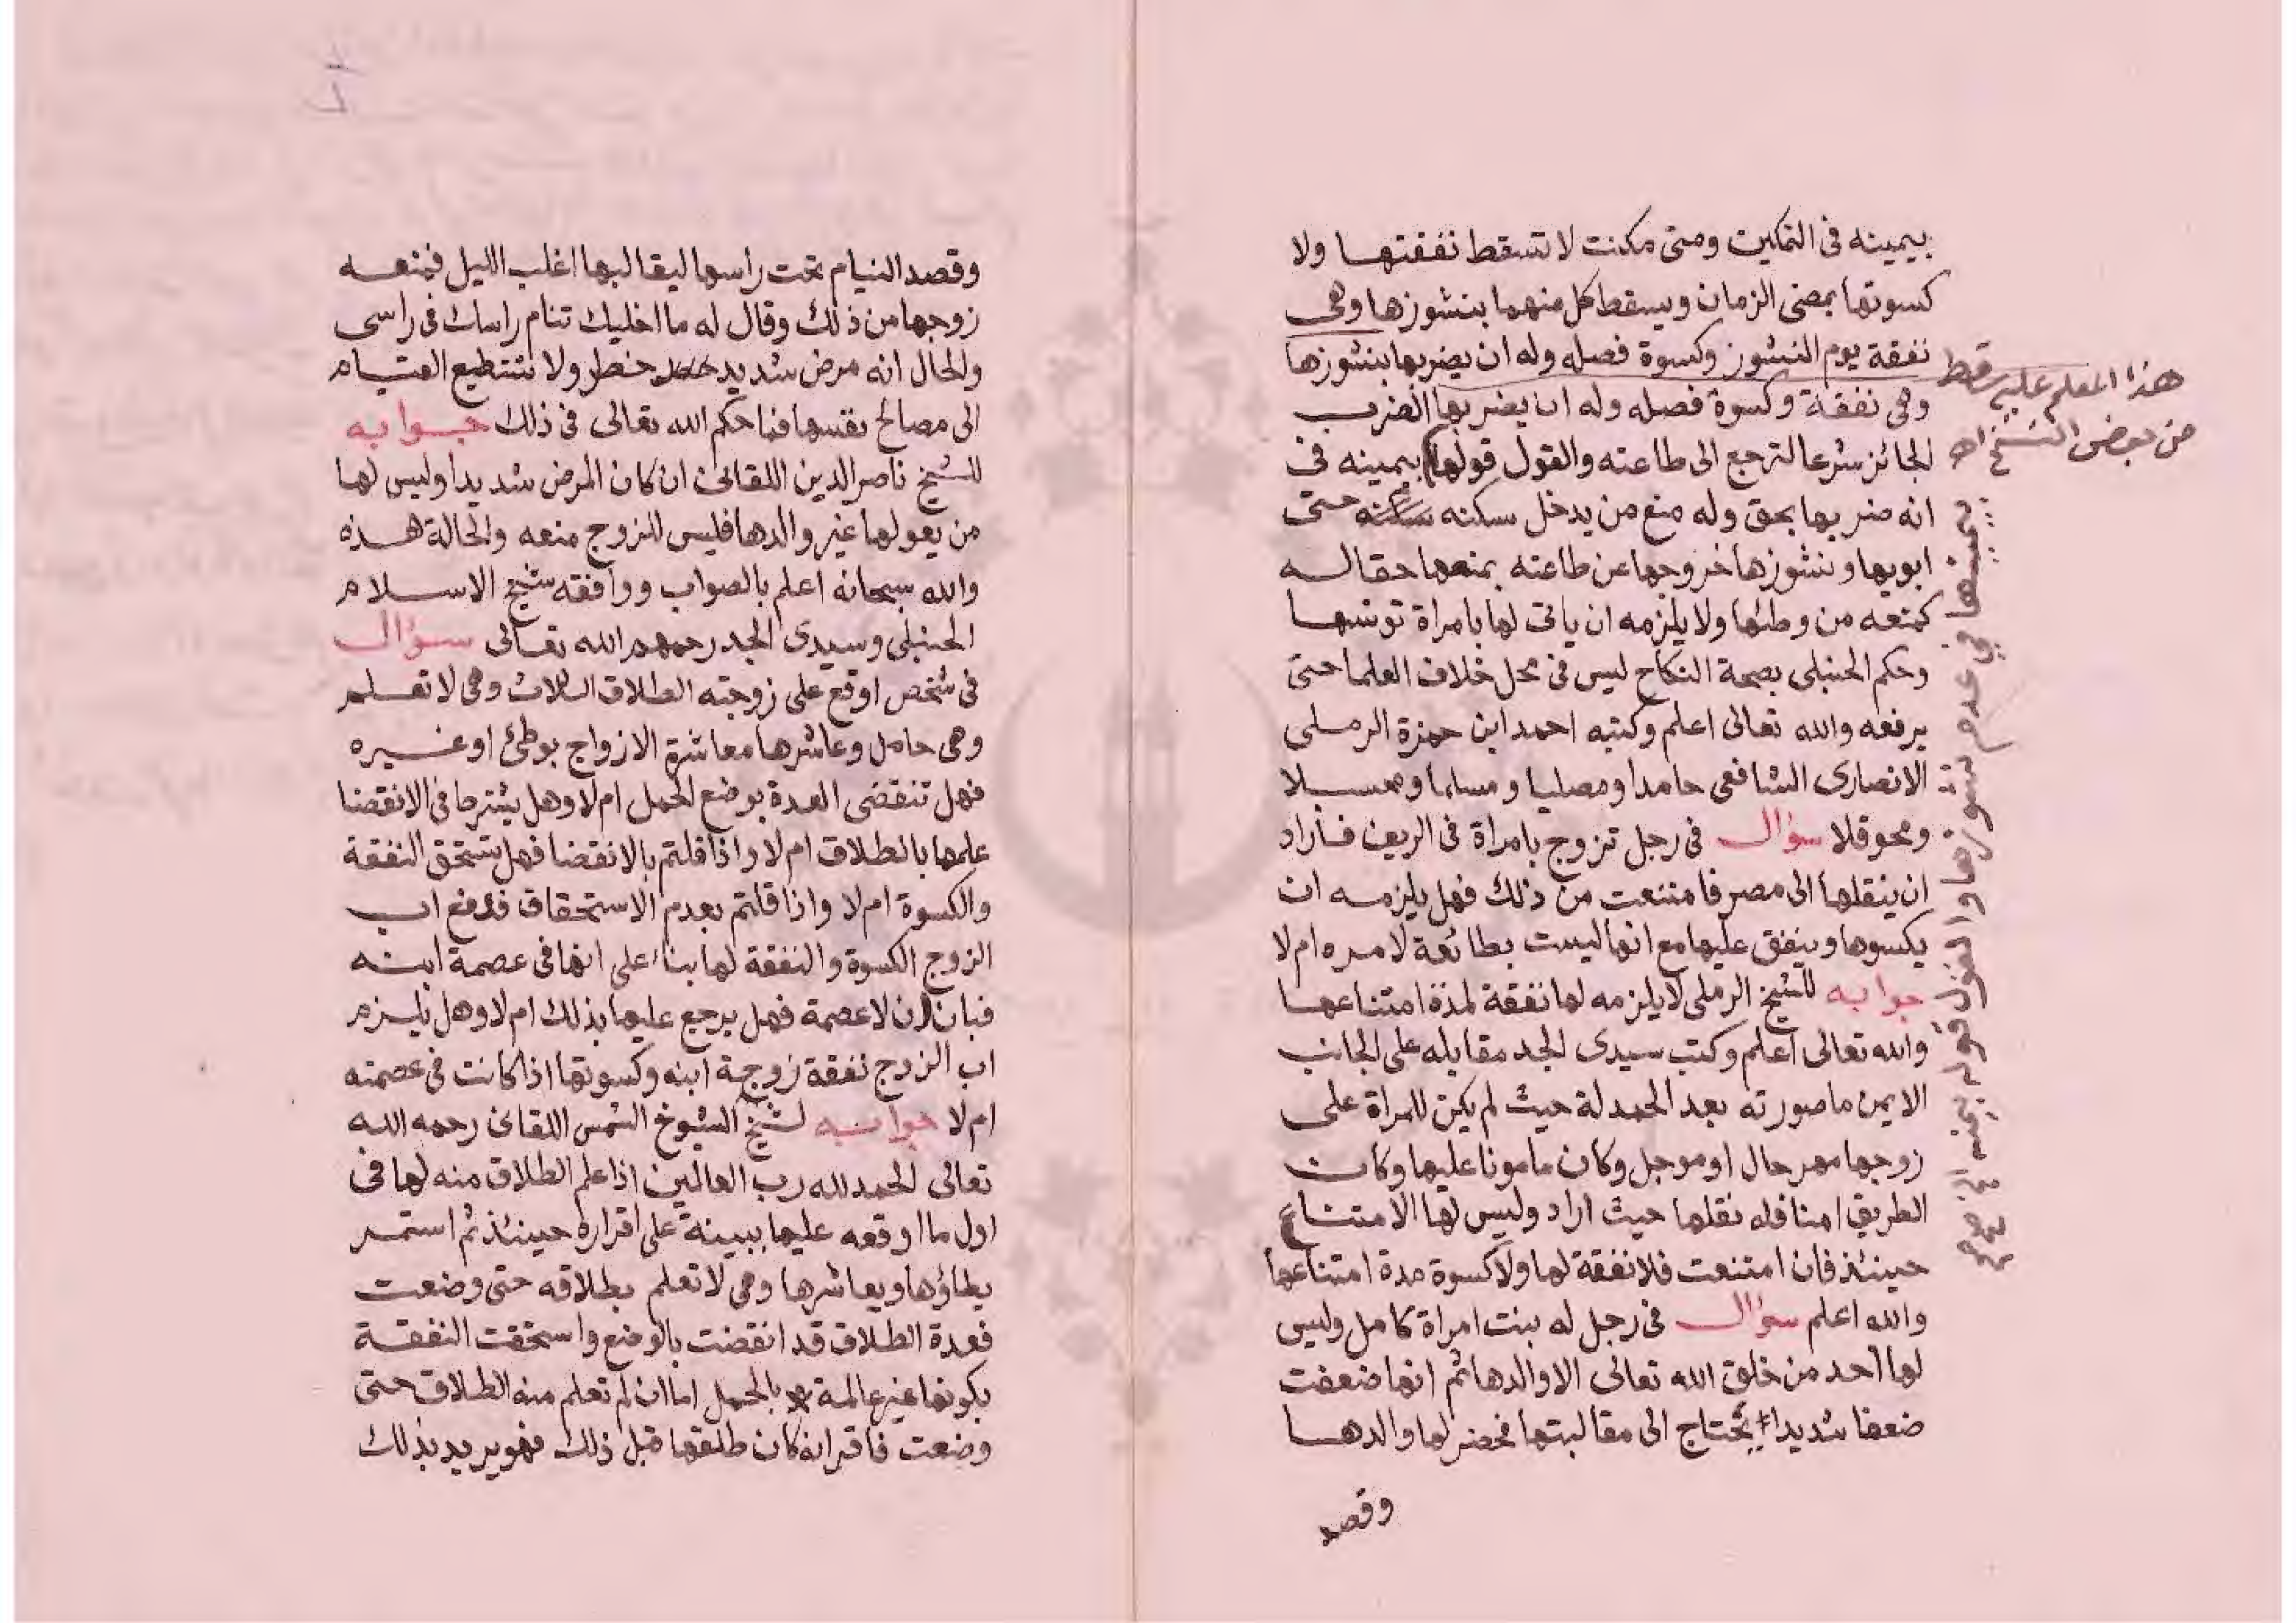 بيمينه فى التمكين ومتى مكنت لا تسقط نفقتها ولا
كسوتها بمضى الزمان ويسقط كل منهما بنشوزها وهى
نفقة يوم النشوز وكسوة فصله وله ان يضربها بنشوزها
وهى نفقة وكسوة فصله وله ان يضربها الضرب
الجائز شرعا لترجع الى طاعته والقول قولها بيمينه فى
انه ضربها بحق وله منع من يدخل سكنه حتى
ابويها ونشوزها خروجها عن طاعته بمنعها حقا له
كمنعه من وطئها ولا يلزمه ان ياتى لها بامراة تونسها
وحكم الحنبلى بصحة النكاح ليس فى محل خلاف العلما حتى
يرفعه والله تعالى اعلم وكتبه احمد ابن حمزة الرملى
الانصارى الشافعى حامدا ومصليا ومسلما ومحسبلا
ومحوقلا سؤال فى رجل تزوج بامراة فى الريف فاراد
ان ينقلها الى مصر فامتنعت من ذلك فهل يلزمه ان
يكسوها وينفق عليها مع انها ليست بطائعة لامره ام لا
جوابه للشيخ الرملى لا يلزمه لها نفقة لمدة امتناعها
والله تعالى اعلم وكتب سيدى الجد مقابله على الجانب
الايمن ما صورته بعد الحمدلة حيث لم يكن للمراة على
زوجها مهر حال او موجل وكان مامونا عليها وكان
الطريق امنا فله نقلها حيث اراد وليس لها الامتناع
حينئذ فان امتنعت فلا نفقة لها ولا كسوة مدة امتناعها
والله اعلم سؤال فى رجل له بنت امراة كامل وليس
لها احد من خلق الله تعالى الا والدها ثم انها ضعفت
ضعفا شديدا يحتاج الى مقالبتها فحضر لها والدها
وقصد
هذا المعلم عليه سقط
من بعض النسخ اهـ
بيمينها فى عدم نشوزها والقول قوله بيمينه
وقصد النيام تحت راسها ليقالبها اغلب الليل فمنعه
زوجها من ذلك وقال له ما اخليك تنام راسك فى راسى
والحال انه مرض شديد خطر ولا تستطيع القيام
الى مصالح نفسها فما حكم الله تعالى فى ذلك جوابه
للشيخ ناصر الدين اللقانى ان كان المرض شديدا وليس لها
من يعولها غير والدها فليس للزوج منعه والحالة هذه
والله سبحانه اعلم بالصواب ووافقه شيخ الاسلام
الحنبلى وسيدى الجد رحمهم الله تعالى سؤال
فى شخص اوقع على زوجته الطلاق الثلاث وهى لا تعلم
وهى حامل وعاشرها معاشرة الازواج بوطئ او غيره
فهل تنقضى العدة بوضع الحمل ام لا وهل يشترط فى الانقضا
علمها بالطلاق ام لا واذا قلتم بالانقضا فهل تستحق النفقة
والكسوة ام لا واذا قلتم بعدم الاستحقاق فدفع اب
الزوج الكسوة والنفقة لها بناء على انها فى عصمة ابنه
فبان ان لا عصمة فهل يرجع عليها بذلك ام لا وهل يلزم
اب الزوج نفقة زوجة ابنه وكسوتها اذا كانت فى عصمته
ام لا جوابه لشيخ الشيوخ الشمس اللقانى رحمه الله
تعالى الحمد لله رب العالمين اذا علم الطلاق منه لها فى
اول ما اوقعه عليها ببينة على اقراره حينئذ ثم استمر
يطاؤها ويعاشرها وهى لا تعلم بطلاقه حتى وضعت
فعدة الطلاق قد انقضت بالوضع واستحقت النفقة
بكونها غير عالمة بالحمل اما ان لم تعلم منه الطلاق حتى
وضعت فاقر انه كان طلقها قبل ذلك فهو يريد بذلك